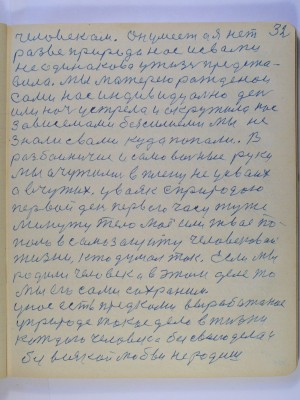 человекам. Он имеет а я нет 32
разве природа нас и с вами
не одинакова у жизу предста-
вила. мы матерею рожденой
сами нас индивидуално ден
или ноч устрела и окружила нас
зависемами бессилием мы не
знали с вами куда попали. В
разбойничие и самовольные руки
мы очутили в плену не у своих
а в чужих, у вас с природою
первой ден первого часу ту же
минуту тело моё или твае по-
пало в самозащиту человеческой
жизни, кто думал так. Если мы
родим человека в этом деле то
мы ёго сами сохраним.
у нас есть предками выработаное
у природе такое дело в жизни
каждого человека без свого дела и
без всякой любви не родиш